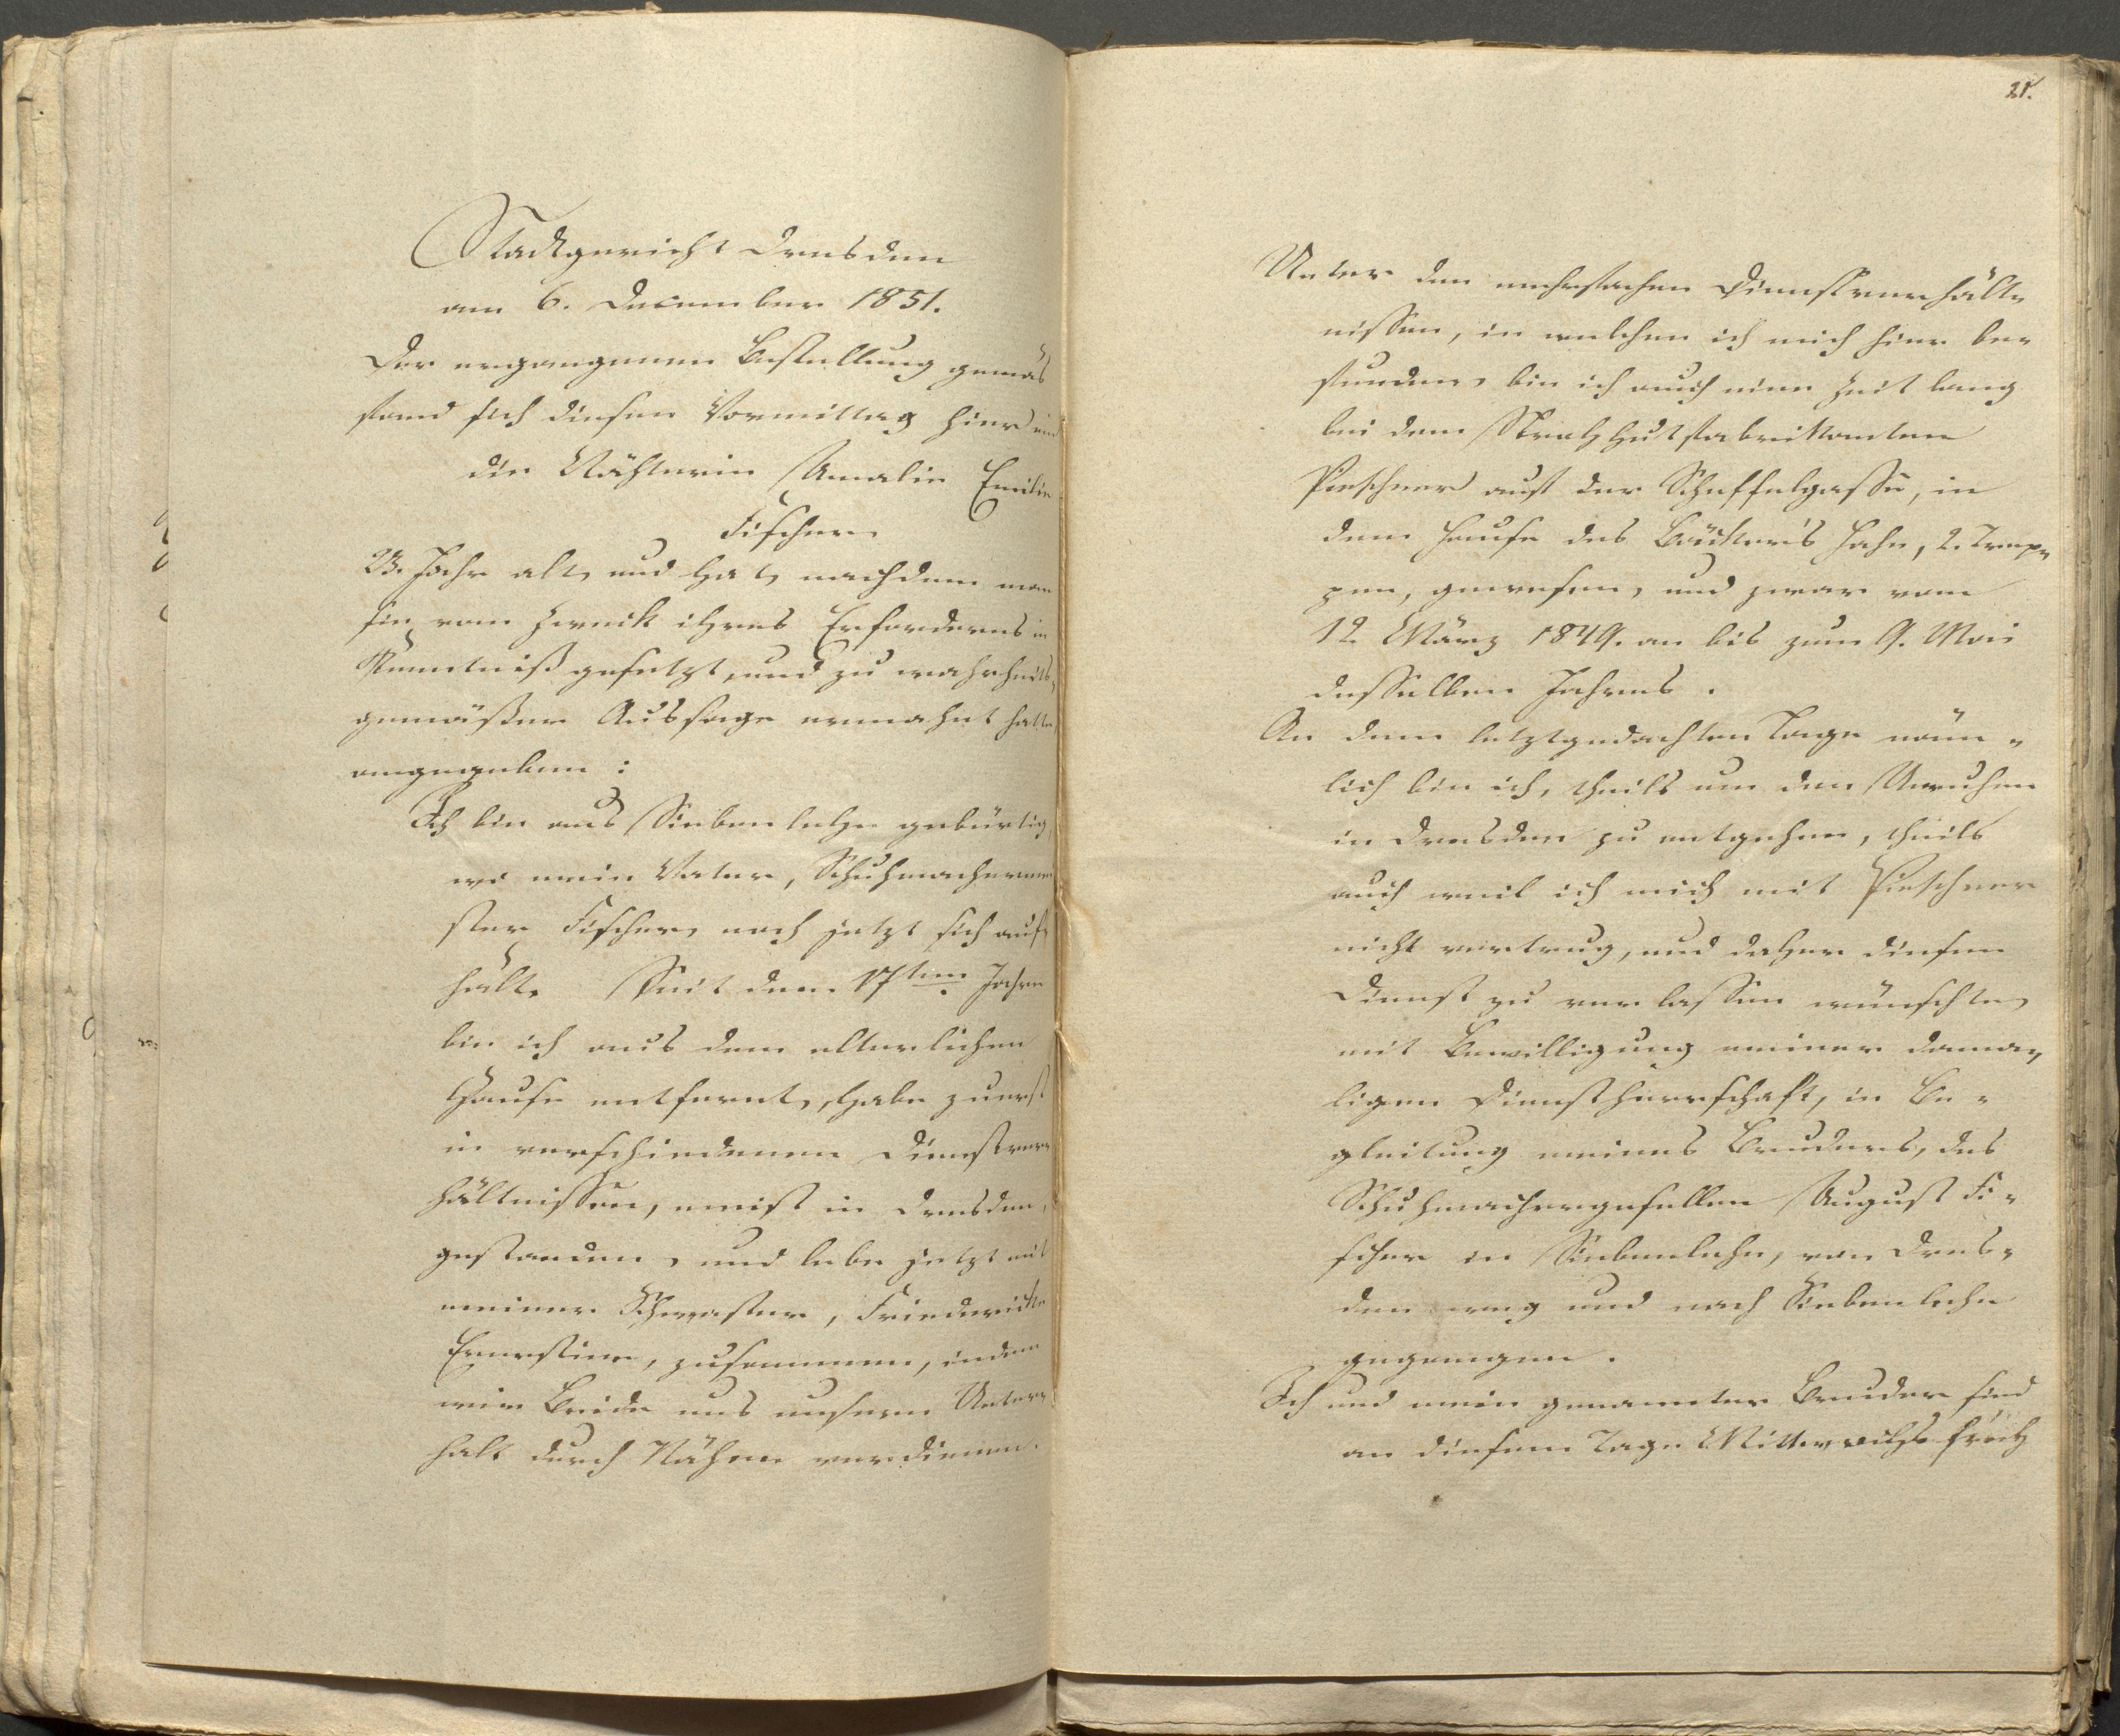 Stadtgericht Dresden
am 6. December 1851.
Der ergangenen Bestellung gemäs
fand sich diesen Vormittag hier ein
die Nähterin Amalie Emilie
Fischer,
23. Jahr alt, und hat, nachdem man
sie vom Zweck ihres Erforderns in
Kenntniß gesetzt, und zu wahrheits-
gemäßer Aussage ermahnt hatte,
angegeben:
Ich bin aus Siebenlehn gebürtig,
wo mein Vater, Schuhmachermei
ster Fischer, noch jetzt sich auf-
hält. Seit dem 17ten Jahre
bin ich aus dem elterlichen
Hause entfernt, habe zuerst
in verschiedenen Dienstver-
hältnissen, meist in Dresden,
gestanden, und lebe jetzt mit
meiner Schwester, Friedericke
Ernestine, zusammen, indem
wir Beide uns unsern Unter-
halt durch Nähen verdienen.
21.
Unter den mehrfachen Dienstverhält-
nissen, in welchen ich mich hier be-
funden, bin ich auch eine Zeit lang
bei dem Strohhutfabrikanten
Pieschner auf der Scheffelgasse, in
dem Hause des Bäcker's Hahn, 2. Trep-
pen, gewesen, und zwar vom
12. März 1849. an bis zum 9. Mai
desselben Jahres.
An dem letztgedachten Tage näm-
lich bin ich, theils um den Unruhen
in Dresden zu entgehen, theils
auch weil ich mich mit Pieschner
nicht vertrug, und daher diesen
Dienst zu verlassen wünschte,
mit Bewilligung meiner dama-
ligen Dienstherrschaft, in Be-
gleitung meines Bruders, des
Schuhmachergesellen August Fi-
scher in Siebenlehn, von Dres-
den weg und nach Siebenlehn
gegangen.
Ich und mein genannter Bruder sind
an diesem Tage Mittwochs früh